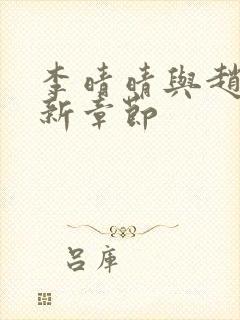 李晴晴與趙
新章節
呂庫